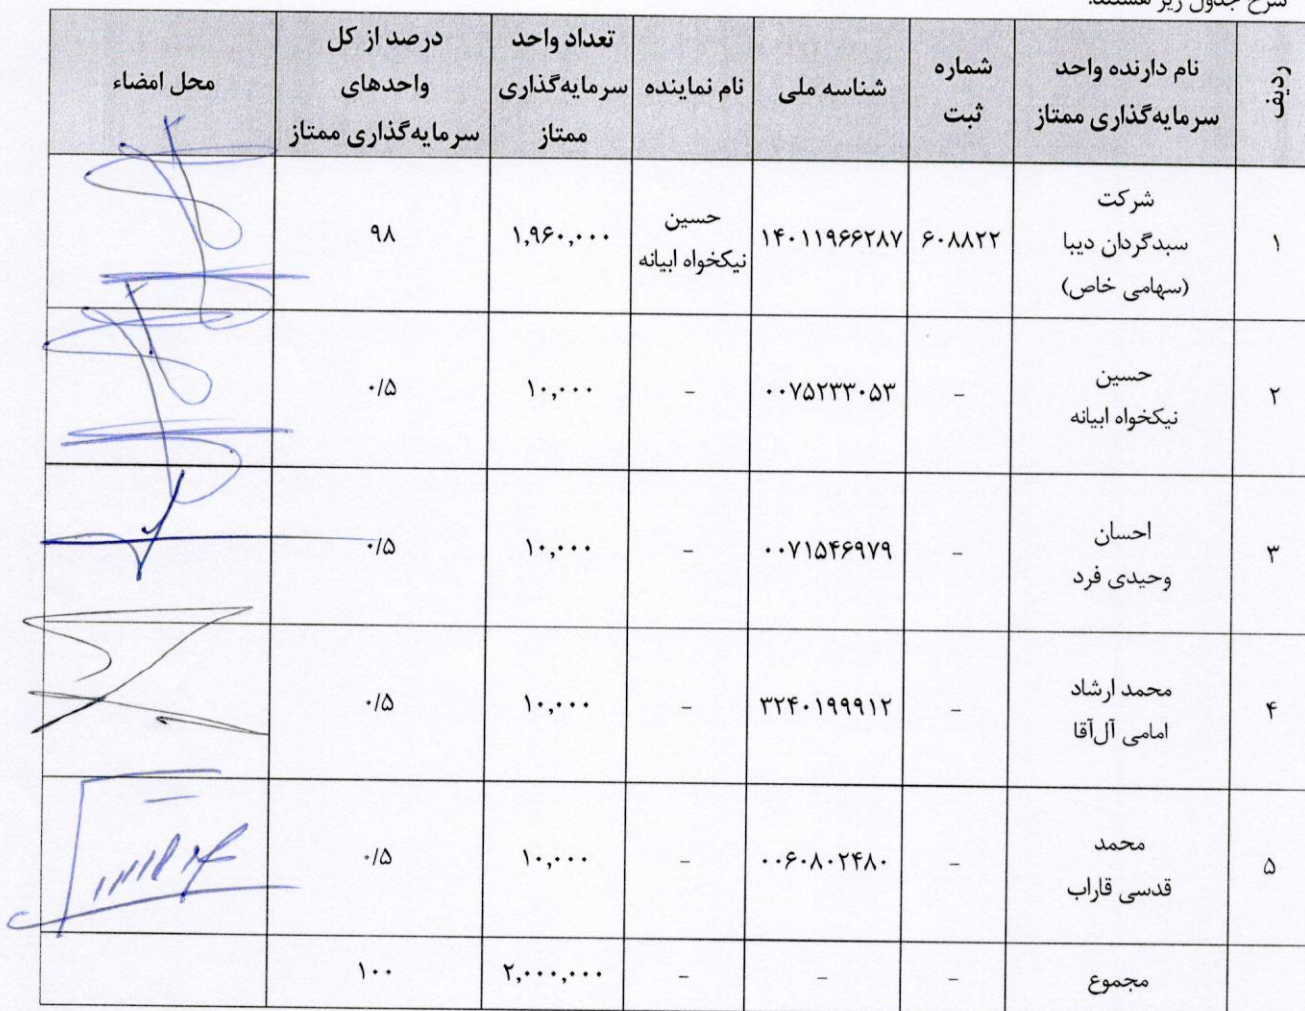 شرح جدول زیر هستند.
ردیف | نام دارنده واحد سرمایه‌گذاری ممتاز | شماره ثبت | شناسه ملی | نام نماینده | تعداد واحد سرمایه‌گذاری ممتاز | درصد از کل واحدهای سرمایه‌گذاری ممتاز | محل امضاء
۱ | شرکت سبدگردان دیبا (سهامی خاص) | ۶۰۸۸۲۲ | ۱۴۰۱۱۹۶۶۲۸۷ | حسین نیکخواه ابیانه | ۱,۹۶۰,۰۰۰ | ۹۸
۲ | حسین نیکخواه ابیانه | - | ۰۰۷۵۲۳۳۰۵۳ | - | ۱۰,۰۰۰ | ۰/۵
۳ | احسان وحیدی فرد | - | ۰۰۷۱۵۴۶۹۷۹ | - | ۱۰,۰۰۰ | ۰/۵
۴ | محمد ارشاد امامی آل‌آقا | - | ۳۲۴۰۱۹۹۹۱۲ | - | ۱۰,۰۰۰ | ۰/۵
۵ | محمد قدسی قاراب | - | ۰۰۶۰۸۰۲۴۸۰ | - | ۱۰,۰۰۰ | ۰/۵
مجموع | - | - | - | ۲,۰۰۰,۰۰۰ | ۱۰۰